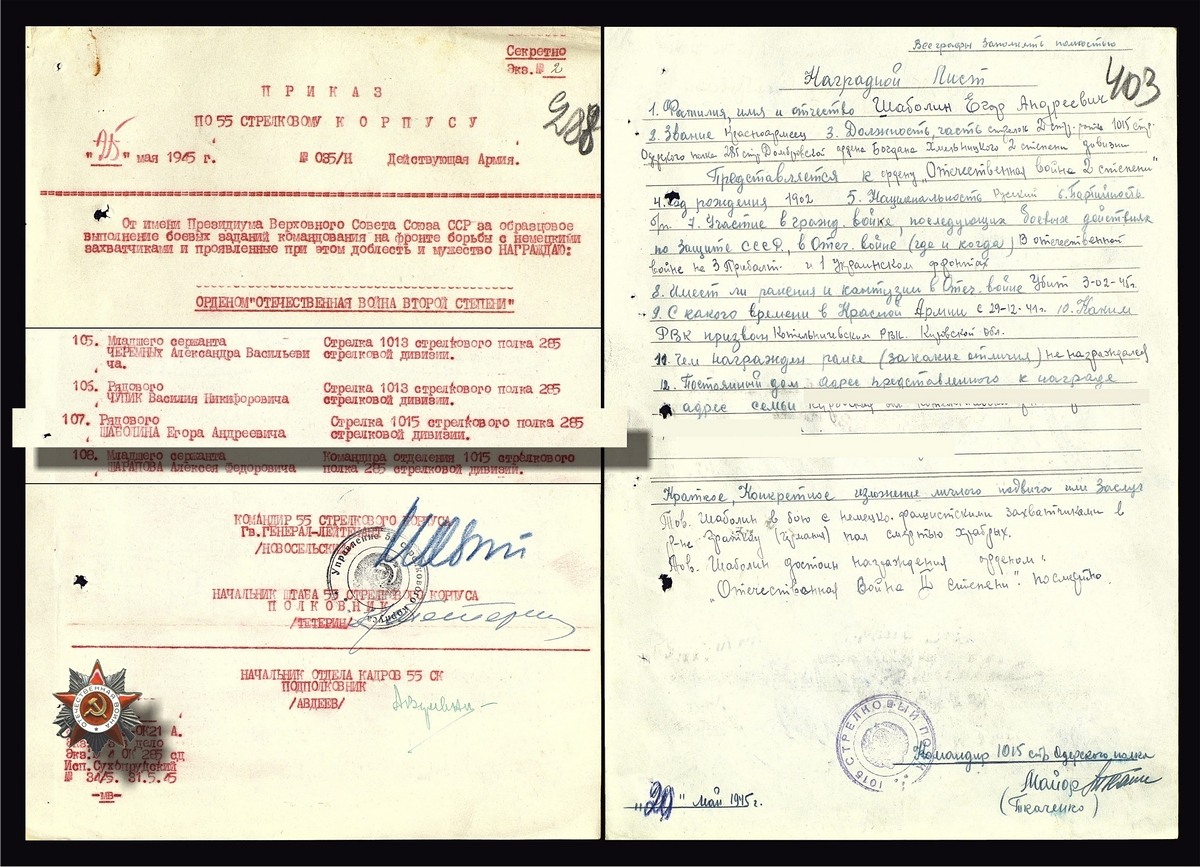 Секретно
Экз.№ 2
208
ПРИКАЗ
ПО 55 СТРЕЛКОВОМУ КОРПУСУ
мая 1945 г. № 035/Н Действующая Армия.
От имени Президиума Верховного Совета Союза ССР за образцовое
выполнение боевых заданий командования на фронте борьбы с немецкими
захватчиками и проявленные при этом доблесть и мужество НАГРАЖДАЮ:
ОРДЕНОМ"ОТЕЧЕСТВЕННАЯ ВОЙНА ВТОРОЙ СТЕПЕНИ"
105. Младшего сержанта Стрелка 1013 стрелкового полка 285
ЧЕРЕМНЫХ Александра Васильеви стрелковой дивизии.
ча.
106. Рядового Стрелка 1013 стрелкового полка 285
ЧУПИК Василия Никифоровича стрелковой дивизии.
107. Рядового Стрелка 1015 стрелкового полка 285
ШАБОЛИНА Егора Андреевича стрелковой дивизии.
108. Младшего сержанта Командира отделения 1015 стрелкового
ШАРАПОВА Алексея Федоровича полка 285 стрелковой дивизии.
КОМАНДИР 55 СТРЕЛКОВОГО КОРПУСА
Гв.ГЕНЕРАЛ-ЛЕЙТЕНАНТ
/НОВОСЕЛЬСКИЙ
НАЧАЛЬНИК ШТАБА 55 СТРЕЛКОВОГО КОРПУСА
ПОЛКОВНИК
/ТЕТЕРИН/
НАЧАЛЬНИК ОТДЕЛА КАДРОВ 55 СК
ПОДПОЛКОВНИК
/АВДЕЕВ/
ОТЕЧЕСТВЕННАЯ ВОЙНА
№ 34/5. 31.5.45
-МВ-
Все графы заполнять полностью
403
Наградной Лист
1. Фамилия, имя и отчество Шаболин Егор Андреевич
2. Звание Красноармеец 3. Должность, часть стрелок 2 стр. роты 1015 стр.
Одерского полка 285 стр. Домбровской ордена Богдана Хмельницкого 2 степени дивизии
Представляется к ордену „Отечественная война 2 степени"
4. Год рождения 1902 5. Национальность Русский 6. Партийность
б/п. 7. Участие в гражд. войне, последующих боевых действиях
по защите СССР, в Отеч. войне (где и когда) В отечественной
войне на 3 Прибалт. и 1 Украинском фронтах
8. Имеет ли ранения и контузии в Отеч. войне Убит 3-02-45г.
9. С какого времени в Красной Армии с 29-12-41г. 10. Каким
РВК призван Котельничевским РВК. Кировской обл.
11. Чем награжден ранее (за какие отличия) не награждался
12. Постоянный дом. адрес представленного к награде
и адрес семьи
Краткое, Конкретное изложение личного подвига или Заслуг
Тов. Шаболин в бою с немецко-фашистскими захватчиками в
р-не (Германия) пал смертью храбрых.
Тов. Шаболин достоин награждения орденом:
„Отечественная Война II степени". посмертно.
1015 СТРЕЛКОВЫЙ ПОЛК
Командир 1015 стр. Одерского полка
Майор
(Ткаченко)
"20" Май 1945г.